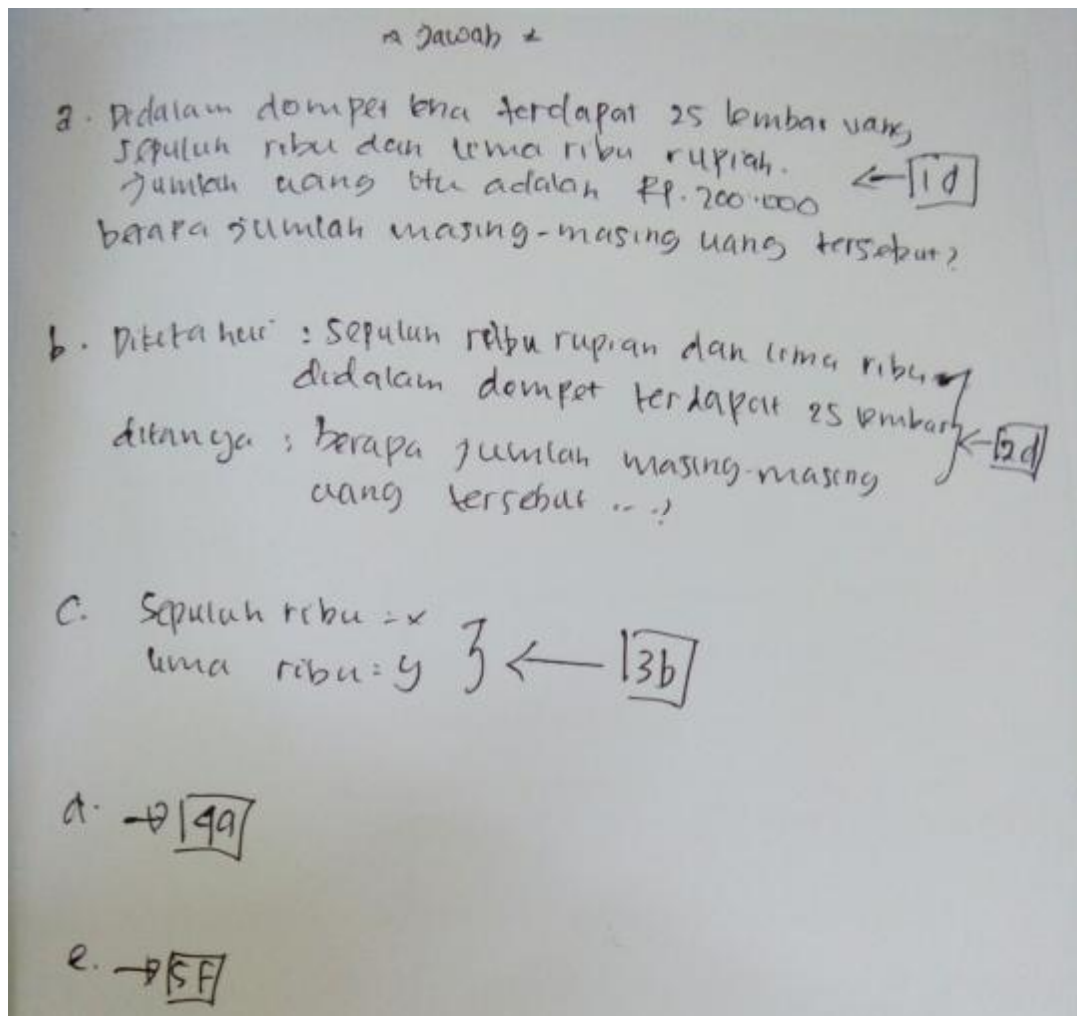 Jawab
a. Didalam dompet ena terdapat 25 lembar uang
sepuluh ribu dan lima ribu rupiah.
Jumlah uang itu adalah Rp. 200.000
1d
berapa jumlah masing-masing uang tersebut?
b. Diketahui : Sepuluh ribu rupiah dan lima ribu
didalam dompet terdapat 25 lembar
2d
ditanya : berapa jumlah masing-masing
uang tersebut ...?
C. Sepuluh ribu = x
lima ribu = y
3b
d. 4a
e. 5F